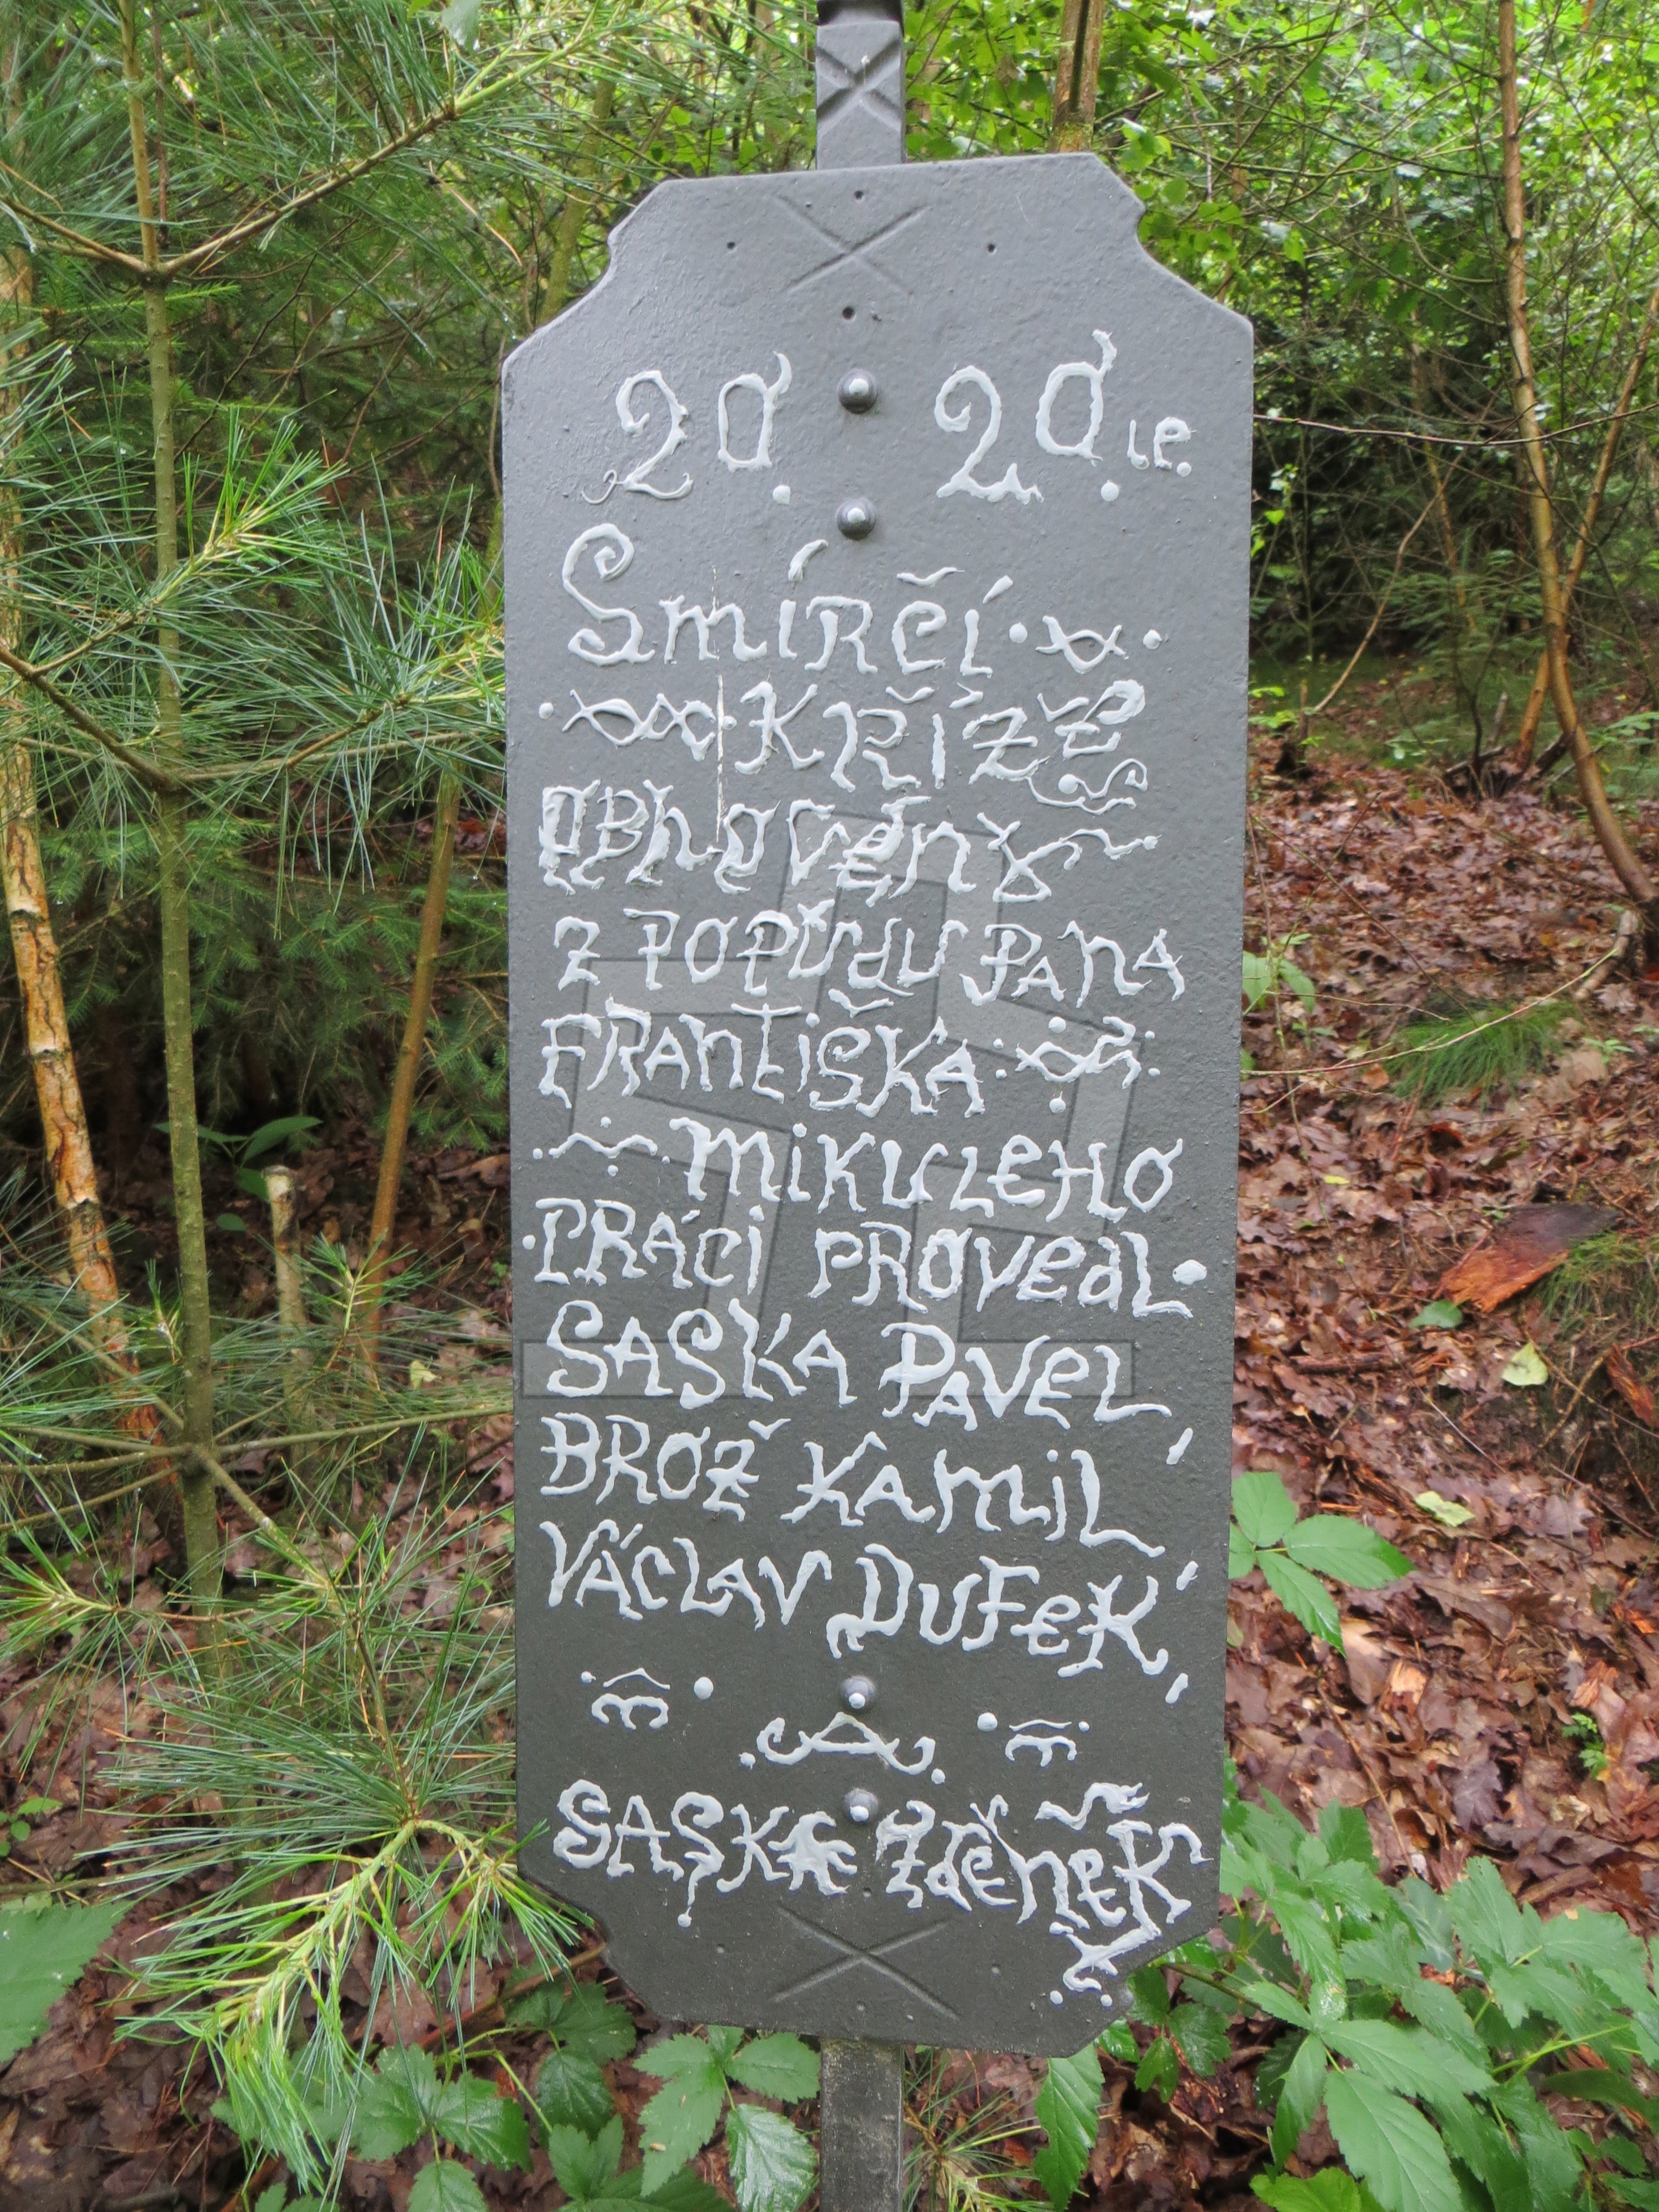 Smírčí
KŘížE
OBhověny
z POPuDU PANA
FRANTIŠKA
MIKULEHO
PRÁCI PROVEDL
SASKA PAVEL,
BROŽ KAMIL,
VÁCLAV DUFEK,
SASKA Zdeněk